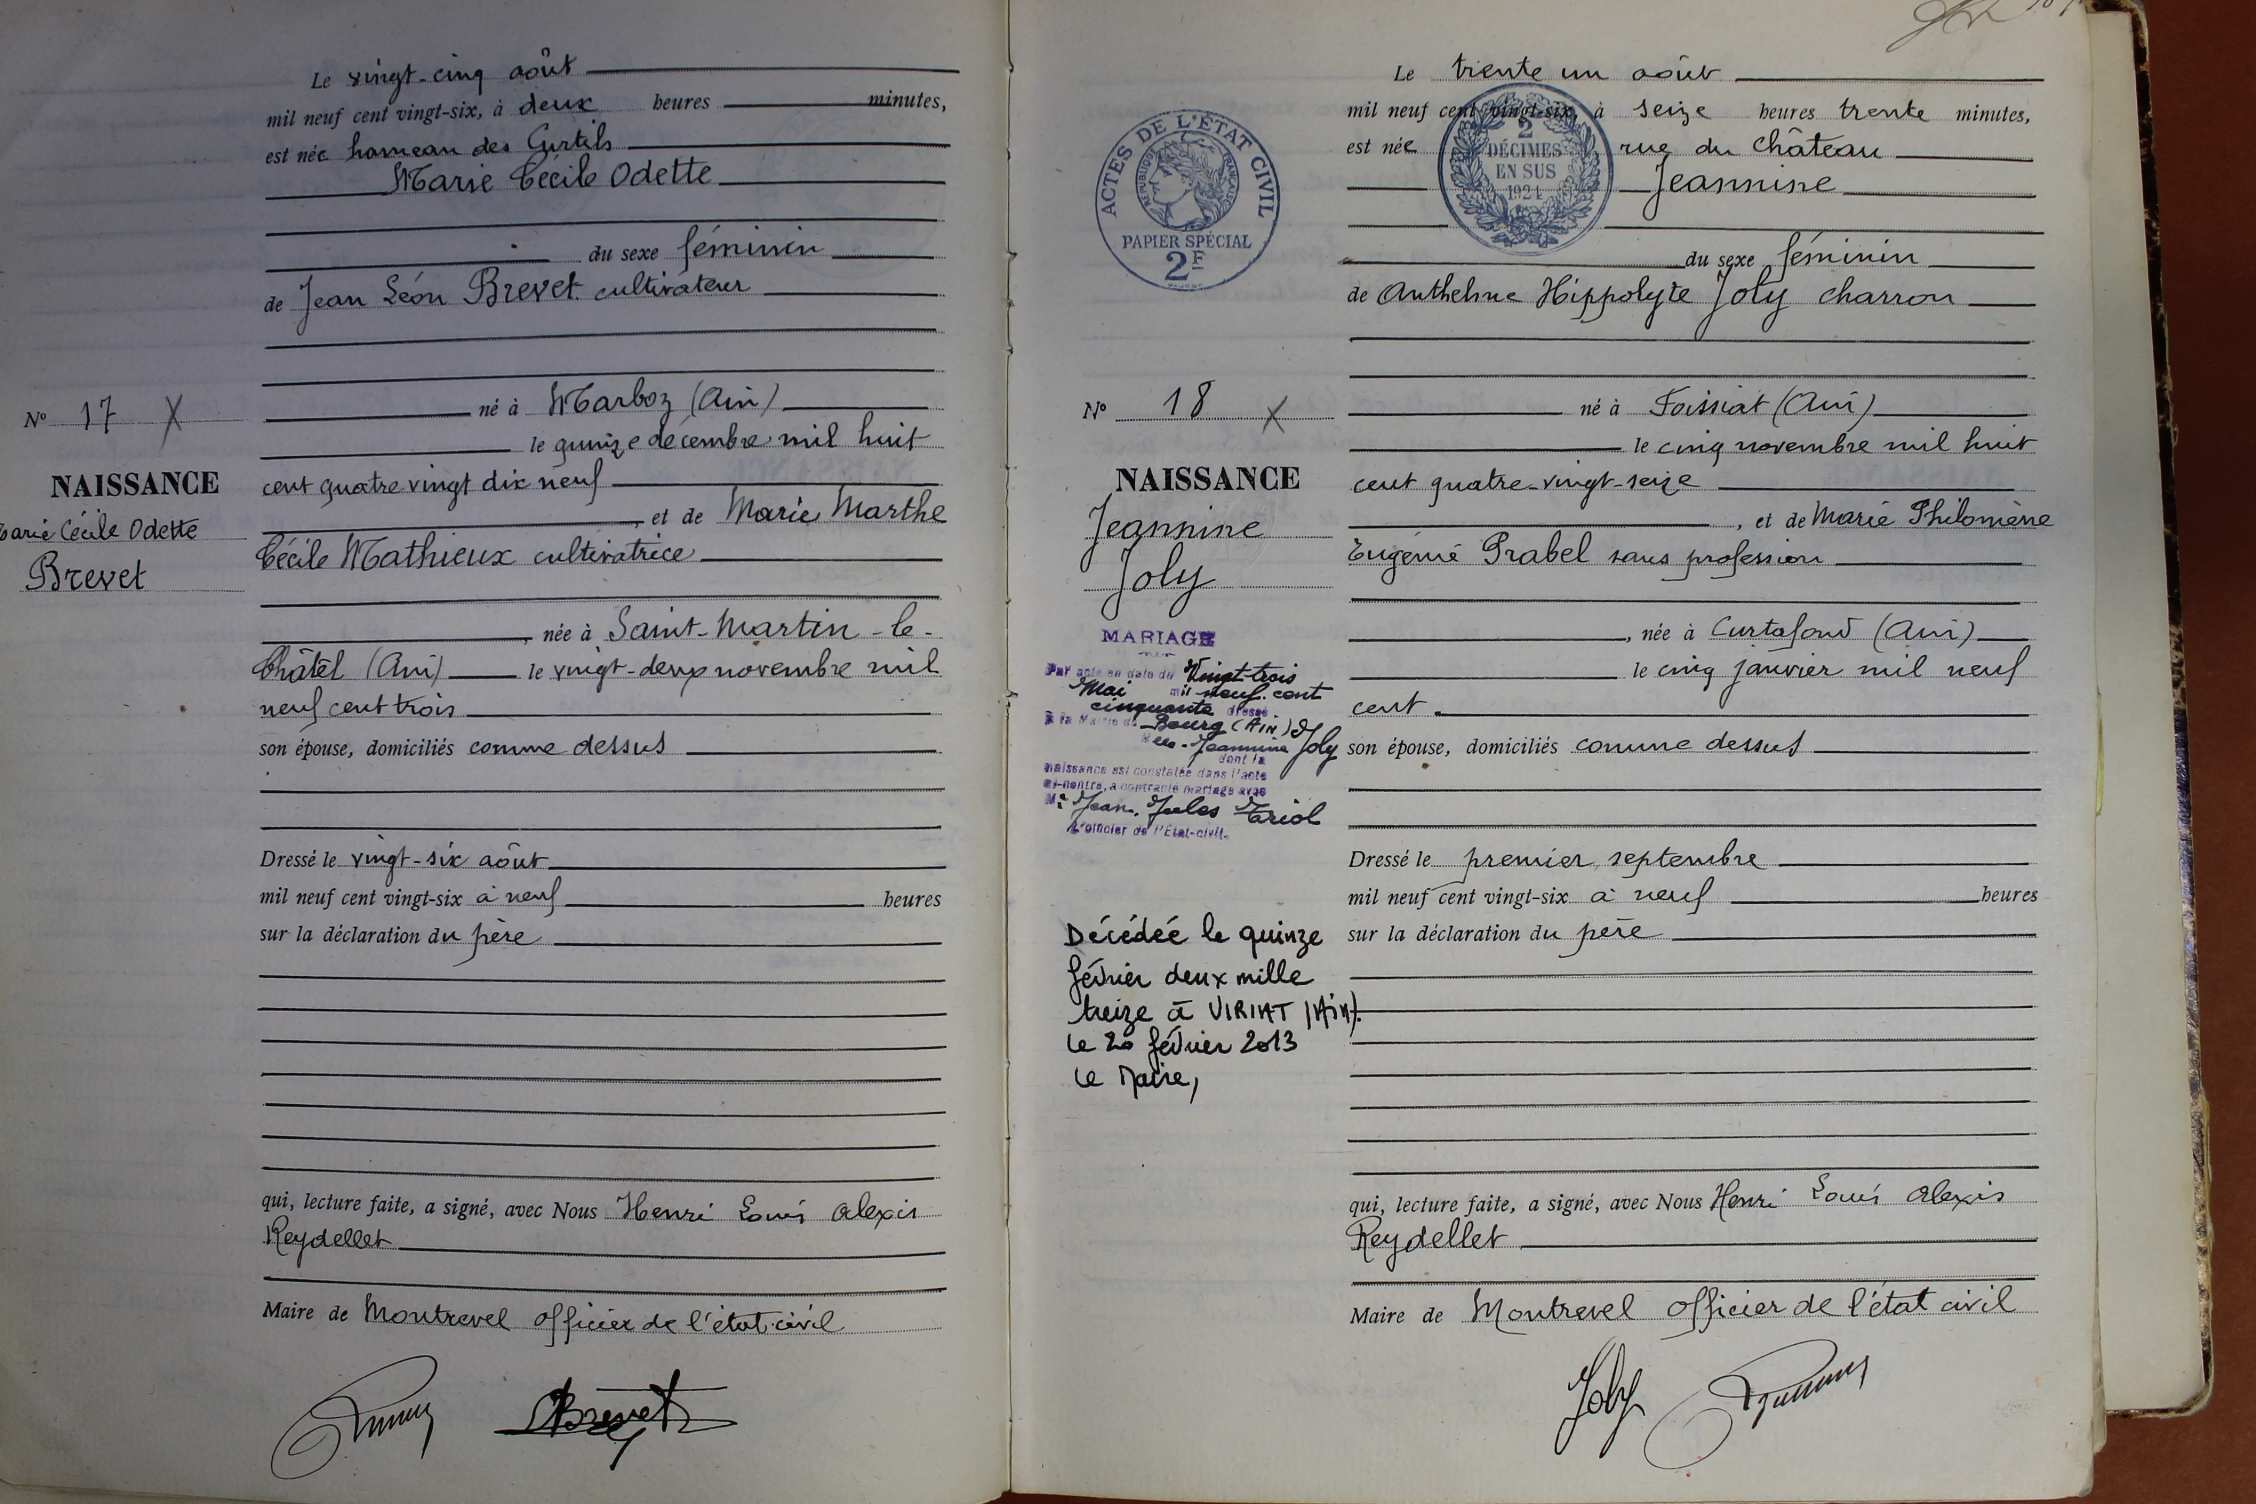 Le vingt-cinq août
mil neuf cent vingt-six, à deux heures minutes,
est née hameau des Curtils
Marie Cécile Odette
du sexe féminin
de Jean Léon Brevet cultivateur
né à Marboz (Ain)
le quinze décembre mil huit
cent quatre vingt dix neuf
, et de Marie Marthe
Cécile Mathieux cultivatrice
, née à Saint-Martin-le-
Châtel (Ain) le vingt-deux novembre mil
neuf cent trois
son épouse, domiciliés comme dessus
Dressé le vingt-six août
mil neuf cent vingt-six à neuf heures
sur la déclaration du père
qui, lecture faite, a signé, avec Nous Henri Louis Alexis
Reydellet
Maire de Montrevel officier de l'état civil
Brevet
No 17 X
NAISSANCE
Marie Cécile Odette
Brevet
Le trente un août
mil neuf cent vingt-six, à seize heures trente minutes,
est née rue du Château
Jeannine
du sexe féminin
de Anthelme Hippolyte Joly charron
né à Foissiat (Ain)
le cinq novembre mil huit
cent quatre-vingt-seize
, et de Marie Philomène
Eugénie Prabel sans profession
, née à Curtafond (Ain)
le cinq janvier mil neuf
cent.
son épouse, domiciliés comme dessus
Dressé le premier septembre
mil neuf cent vingt-six à neuf heures
sur la déclaration du père
qui, lecture faite, a signé, avec Nous Henri Louis Alexis
Reydellet
Maire de Montrevel officier de l'état civil
Joly
ACTES DE L'ÉTAT CIVIL
RÉPUBLIQUE FRANÇAISE
PAPIER SPÉCIAL
2F
2
DÉCIMES
EN SUS
1924
No 18 X
NAISSANCE
Jeannine
Joly
MARIAGE
Par acte en date du Vingt-trois
Mai mil neuf cent
cinquante dressé
à la Mairie de Bourg (Ain)
Jeannine Joly
dont la
naissance est constatée dans l'acte
ci-contre, a contracté mariage avec
Mr Jean. Jules Tériol
L'officier de l'État-civil.
Décédée le quinze
février deux mille
treize à VIRIAT (Ain).
le 20 février 2013
Le Maire,